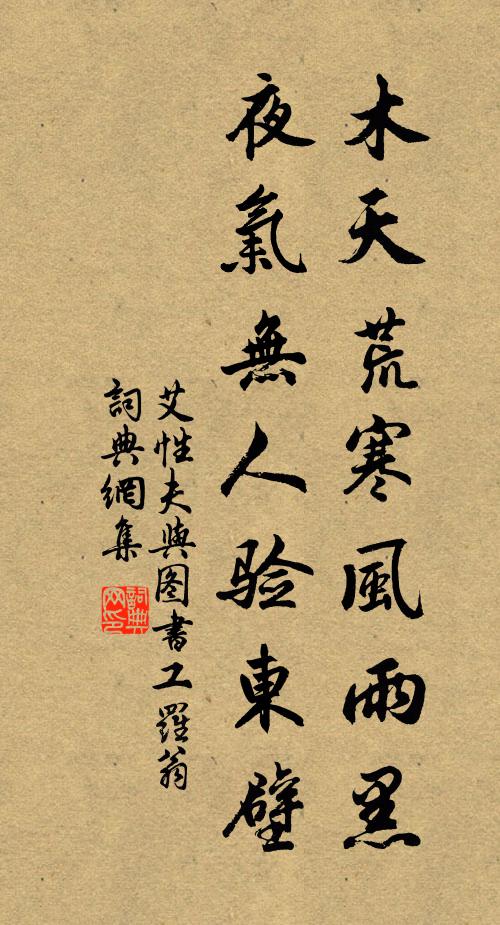 木天荒寒風雨黑
夜氣無人验東壁
艾性夫與图書工羅翁
詞典網集
詞典网印